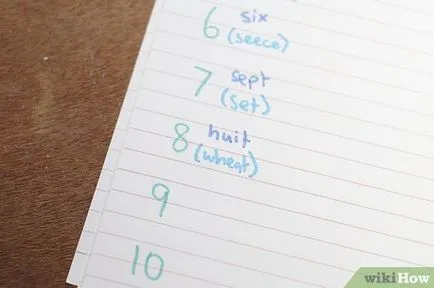 6 six
(seece)
7 sept
(set)
8 huit
(wheat)
9
10
wikiHow